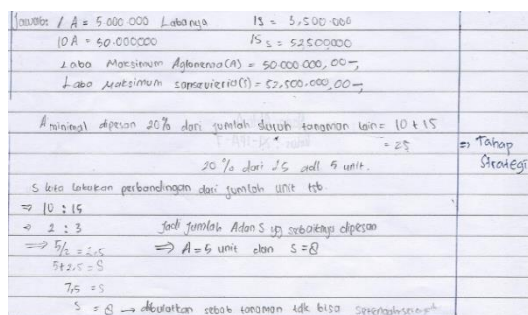 Jawab: 1 A = 5.000.000 Labanya 1S = 3,500.000
10A = 50.000000 15 S = 52500000
Laba Maksimum Aglonema (A) = 50.000 000, 00 -,
Laba Maksimum sansevieria(S) = 52.500.000,00 -,
A minimal dipesan 20% dari jumlah seluruh tanaman lain = 10 + 15
= 25
20 % dari 25 adl 5 unit.
S kita lakukan perbandingan dari jumlah unit tsb.
⇒ 10 : 15
⇒ 2 : 3 Jadi jumlah A dan S yg sebaiknya dipesan
⇒ 5/2 = 2,5 ⇒ A = 5 unit dan S = 8
5+2,5 = S
7,5 = S
S = 8 → dibulatkan sebab tanaman tdk bisa
⇒ Tahap
Strategi